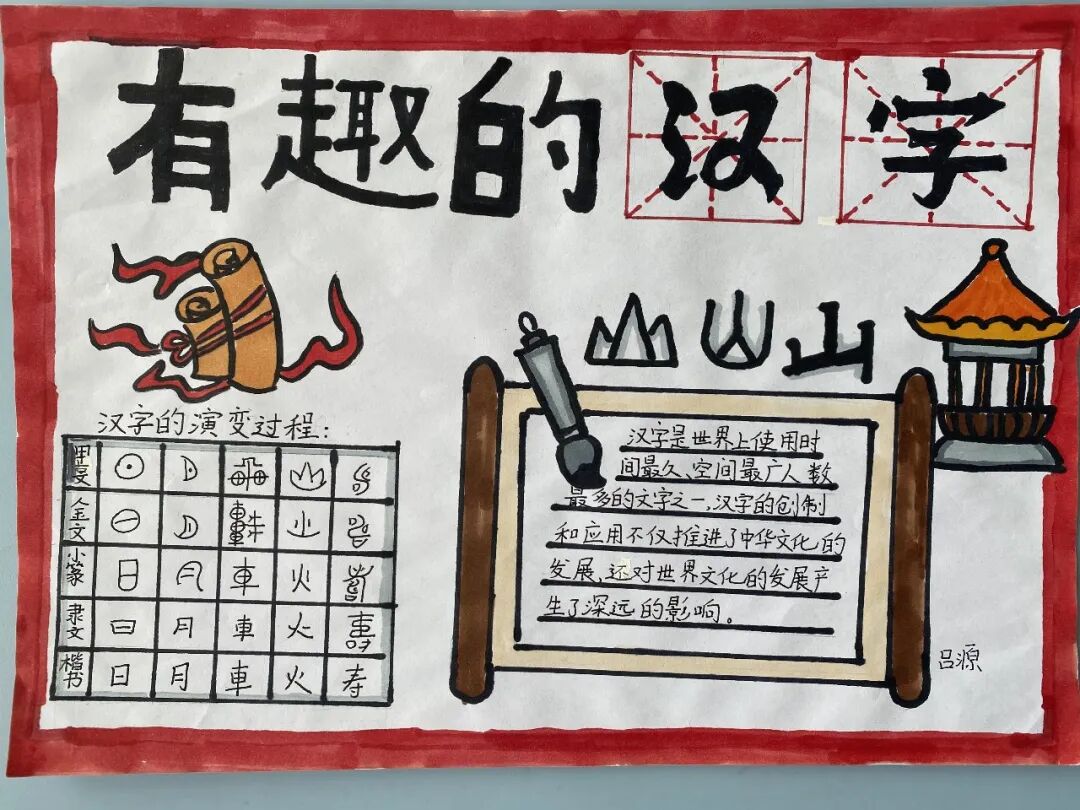 有趣的汉字
山
汉字的演变过程:
金文
小篆 日 月 車 火
隶文 日 月 車 火 壽
楷书 日 月 車 火 寿
汉字是世界上使用时
间最久、空间最广人数
最多的文字之一,汉字的创制
和应用不仅推进了中华文化的
发展,还对世界文化的发展产
生了深远的影响。
吕源